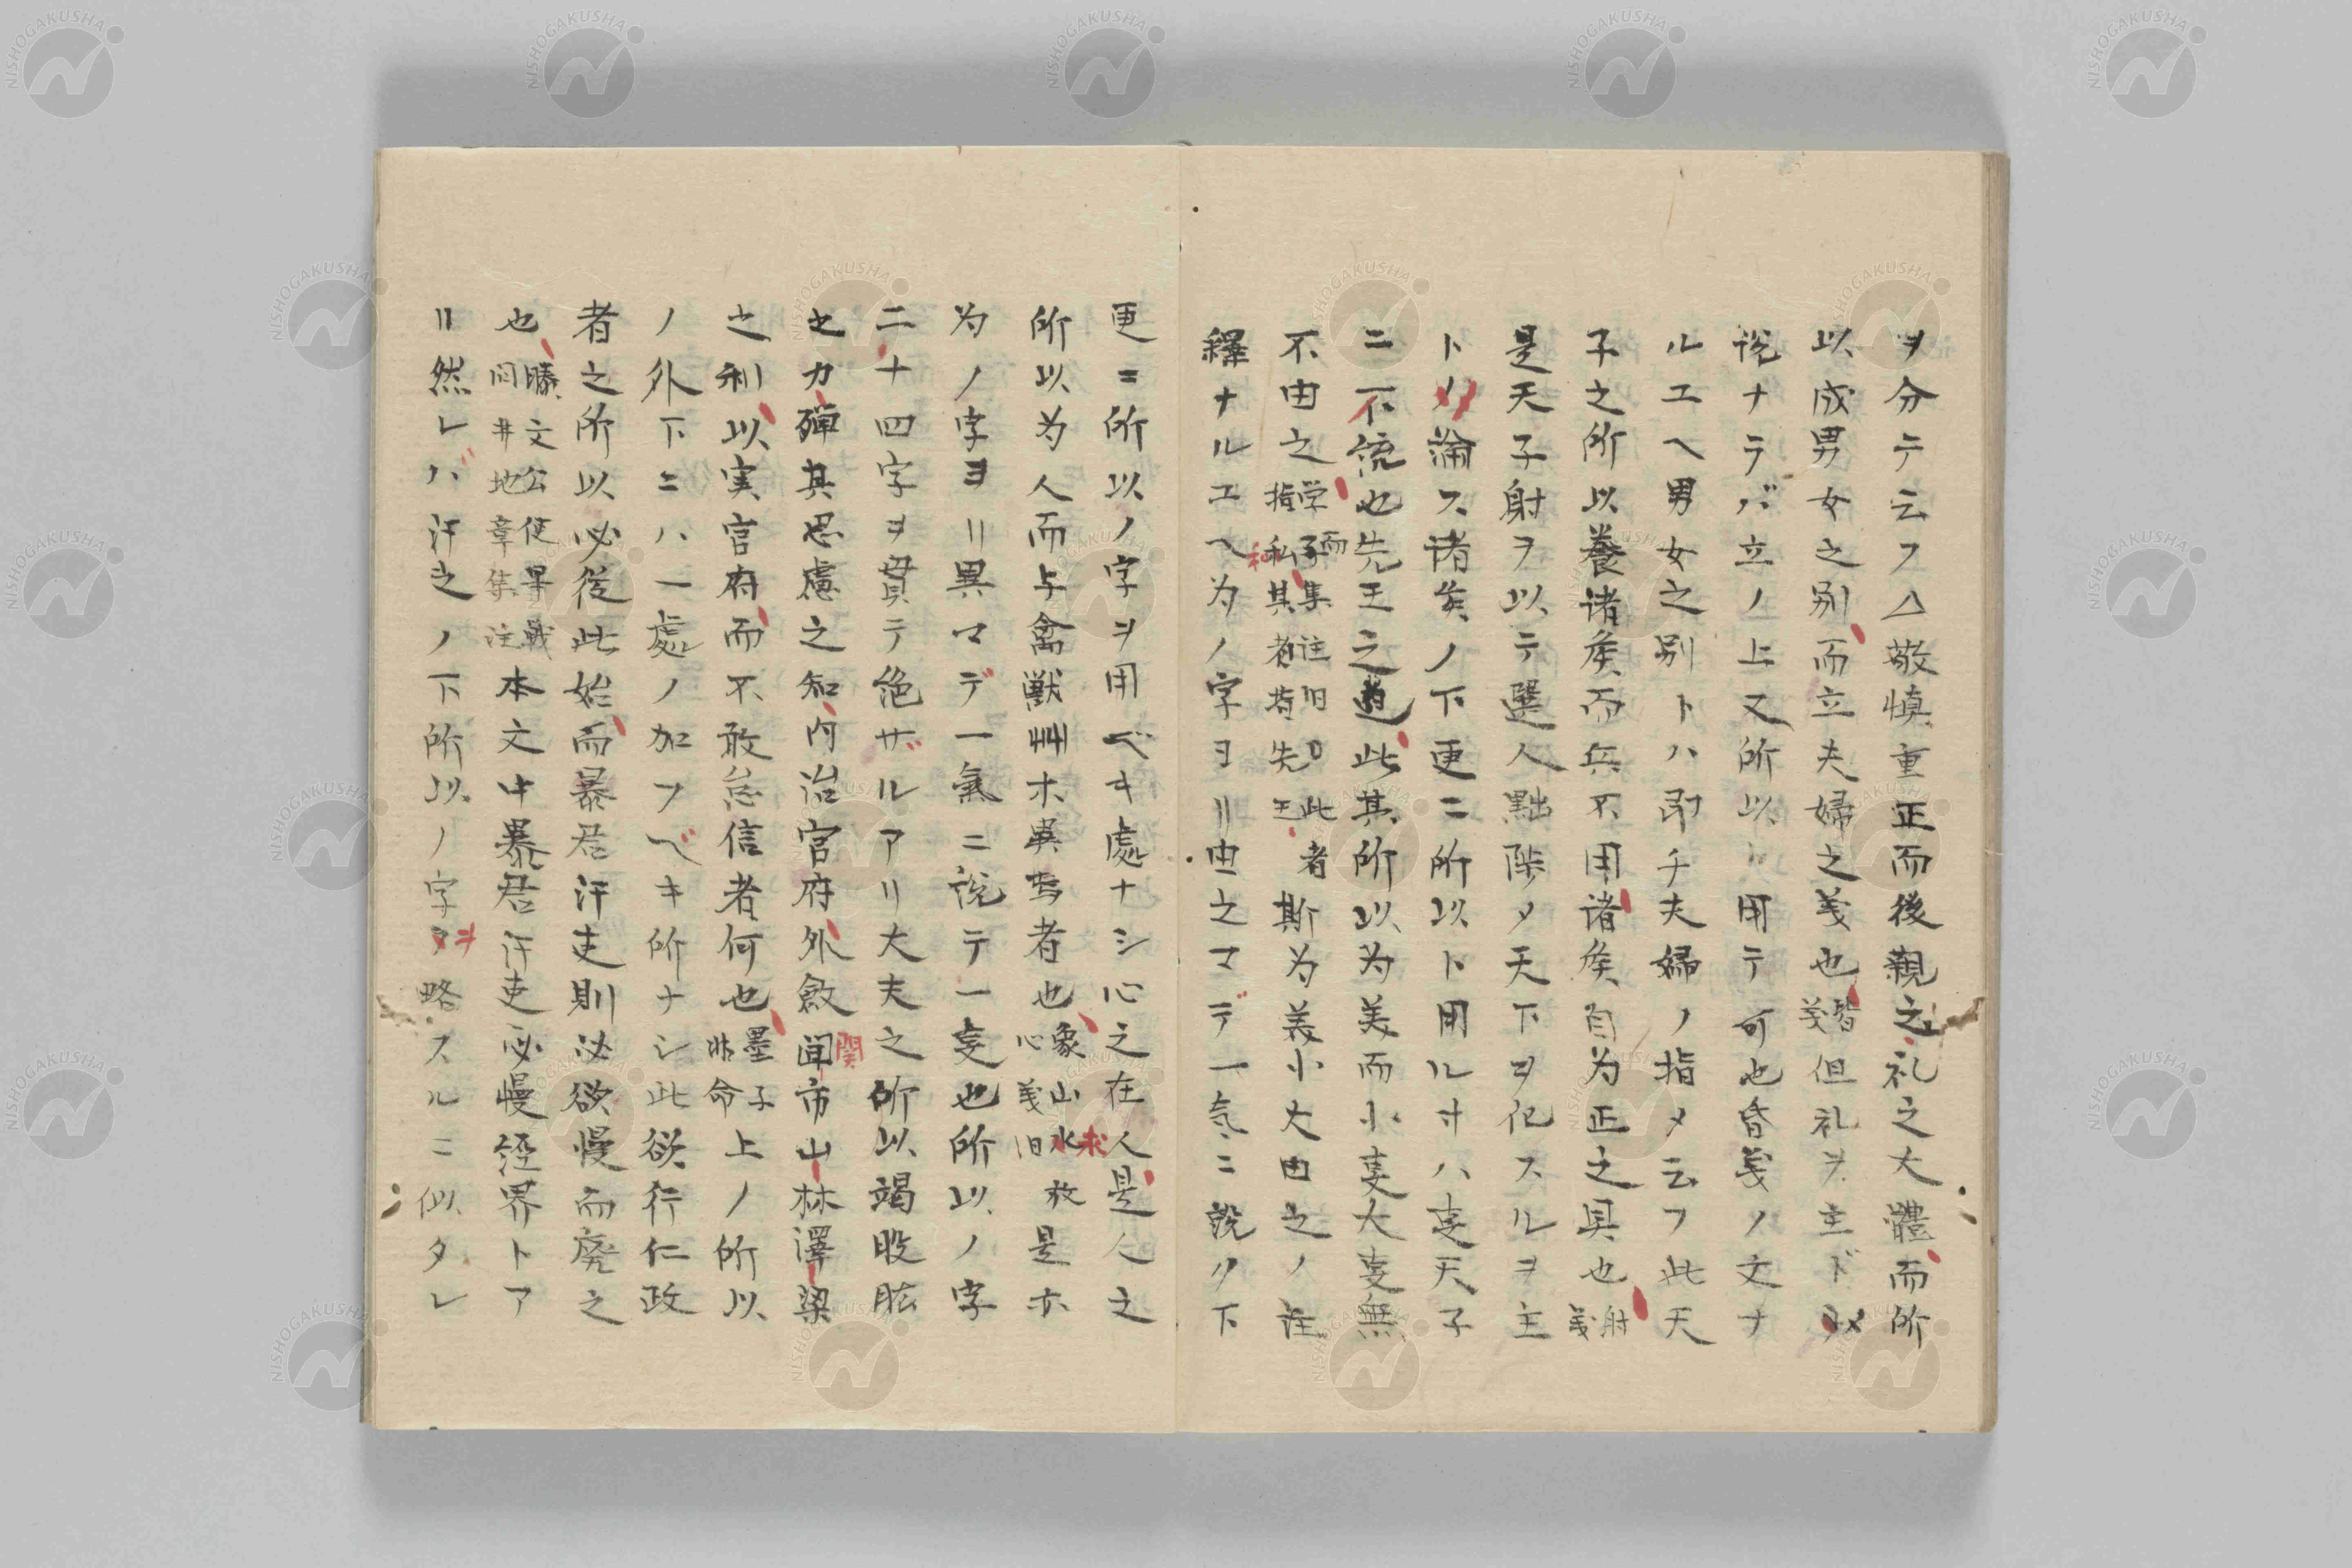 ヲ分テ云フ△敬慎重正而後親之礼之大體而所
以成男女之別而立夫婦之義也昏義但礼ヲ主ド
説ナラバ立ノ上又所以用テ可也昏義ノ文ナ
ルエヘ男女之別トハ即チ夫婦ノ指メ云フ此天
子之所以養諸矦而兵不用諸矦自為正之具也射義
是天子射ヲ以テ選人黜陟メ天下ヲ化スルヲ主
トノ論ス諸矦ノ下更ニ所以ト用ル寸ハ叓天子
ニ不統也先王之道此其所以為美而小叓大叓無
不由之学而子集注旧口此者指私和其者若先王斯為美小大由之ノ注
釋ナルエヘ為ノ字ヨリ由之マデ一気ニ説ク下
更ニ所以ノ字ヲ用ベキ處ナシ心之在人是人之
所以為人而与禽獣艸木異寔者也象山水求放心義旧是亦
為ノ字ヨリ異マデ一氣ニ説テ一叓也所以ノ字
二十四字ヲ貫テ絶ザルアリ大夫之所以竭股肱
之力殫其思慮之知内治官府外斂関市山林澤梁
之利以実官府而不敢怠信者何也墨子非命上ノ所以
ノ外下ニハ一處ノ加フベキ所ナシ此欲行仁政
者之所以必従此始而暴君汗吏則必欲慢而廃之
也滕文公使畢戦問井地章集注本文中暴君汗吏必慢経界トア
リ然レバ汗之ノ下所以ノ字ヲ略スルニ似タレ
NISHOGAKUSHA